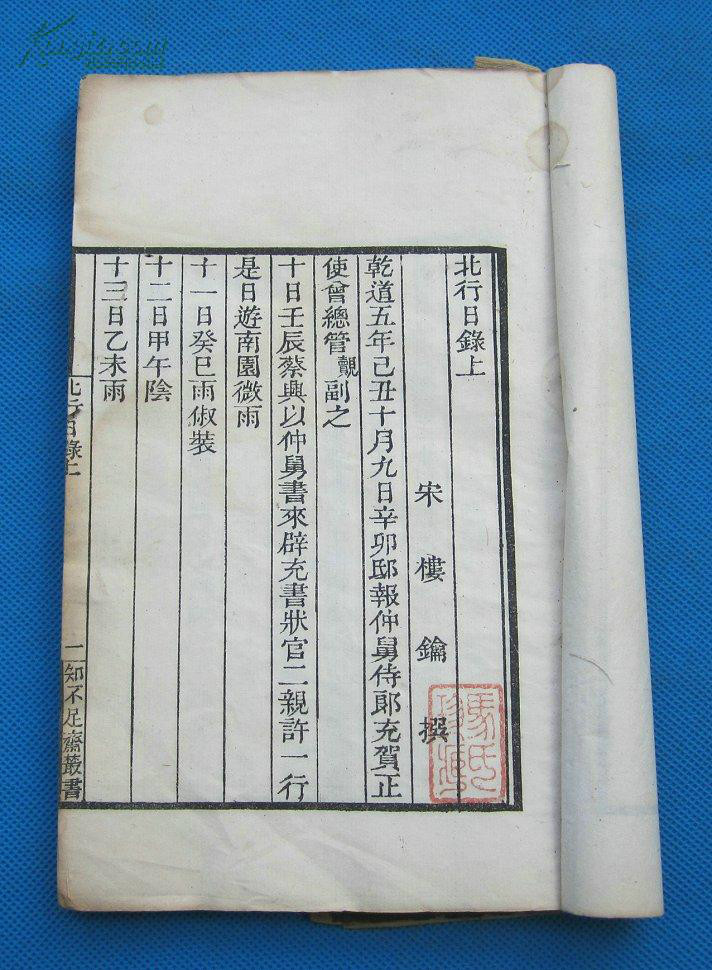 北行日錄上
宋樓鑰撰
乾道五年己丑十月九日辛卯邸報仲舅侍郎充賀正
使曾總管覿副之
十日壬辰蔡興以仲舅書來辟充書狀官二親許一行
是日遊南園微雨
十一日癸巳雨俶裝
十二日甲午陰
十三日乙未雨
北行日錄上
二知不足齋叢書